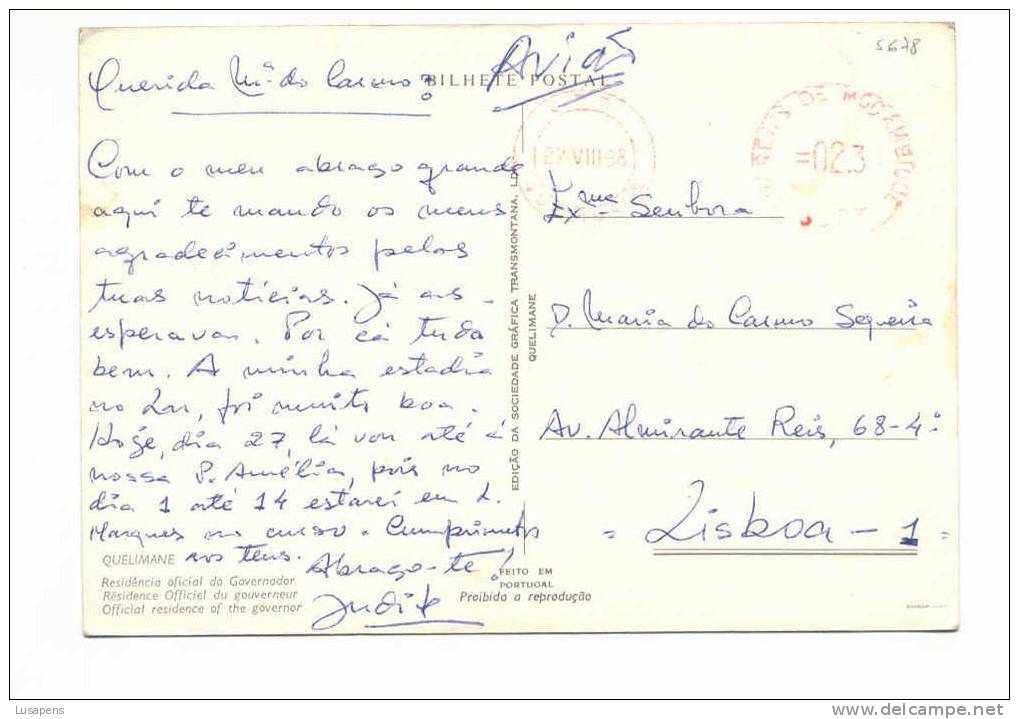 5678
BILHETE POSTAL
Avião
Querida Mª do Carmo:
Com o meu abraço grande
aqui te mando os meus
agradecimentos pelas
tuas notícias. Já as
esperava. Por cá tudo
bem. A minha estadia
no Lar, foi muito boa.
Hoje, dia 27, lá vou até á
nossa P. Amélia, pois no
dia 1 até 14 estarei em L.
Marques no curso. Cumprimentos
aos teus.
Abraço-te,
Judite
QUELIMANE
Residência oficial do Governador
Résidence Officiel du gouverneur
Official residence of the governor
EDIÇÃO DA SOCIEDADE GRÁFICA TRANSMONTANA, LDA
QUELIMANE
FEITO EM
PORTUGAL
Proibida a reprodução
27 VIII 68
CORREIOS DE MOÇAMBIQUE
=02.3
Exma Senhora
D. Maria do Carmo Sequeira
Av. Almirante Reis, 68-4º
= Lisboa - 1 =
Lusapens
www.delcampe.net